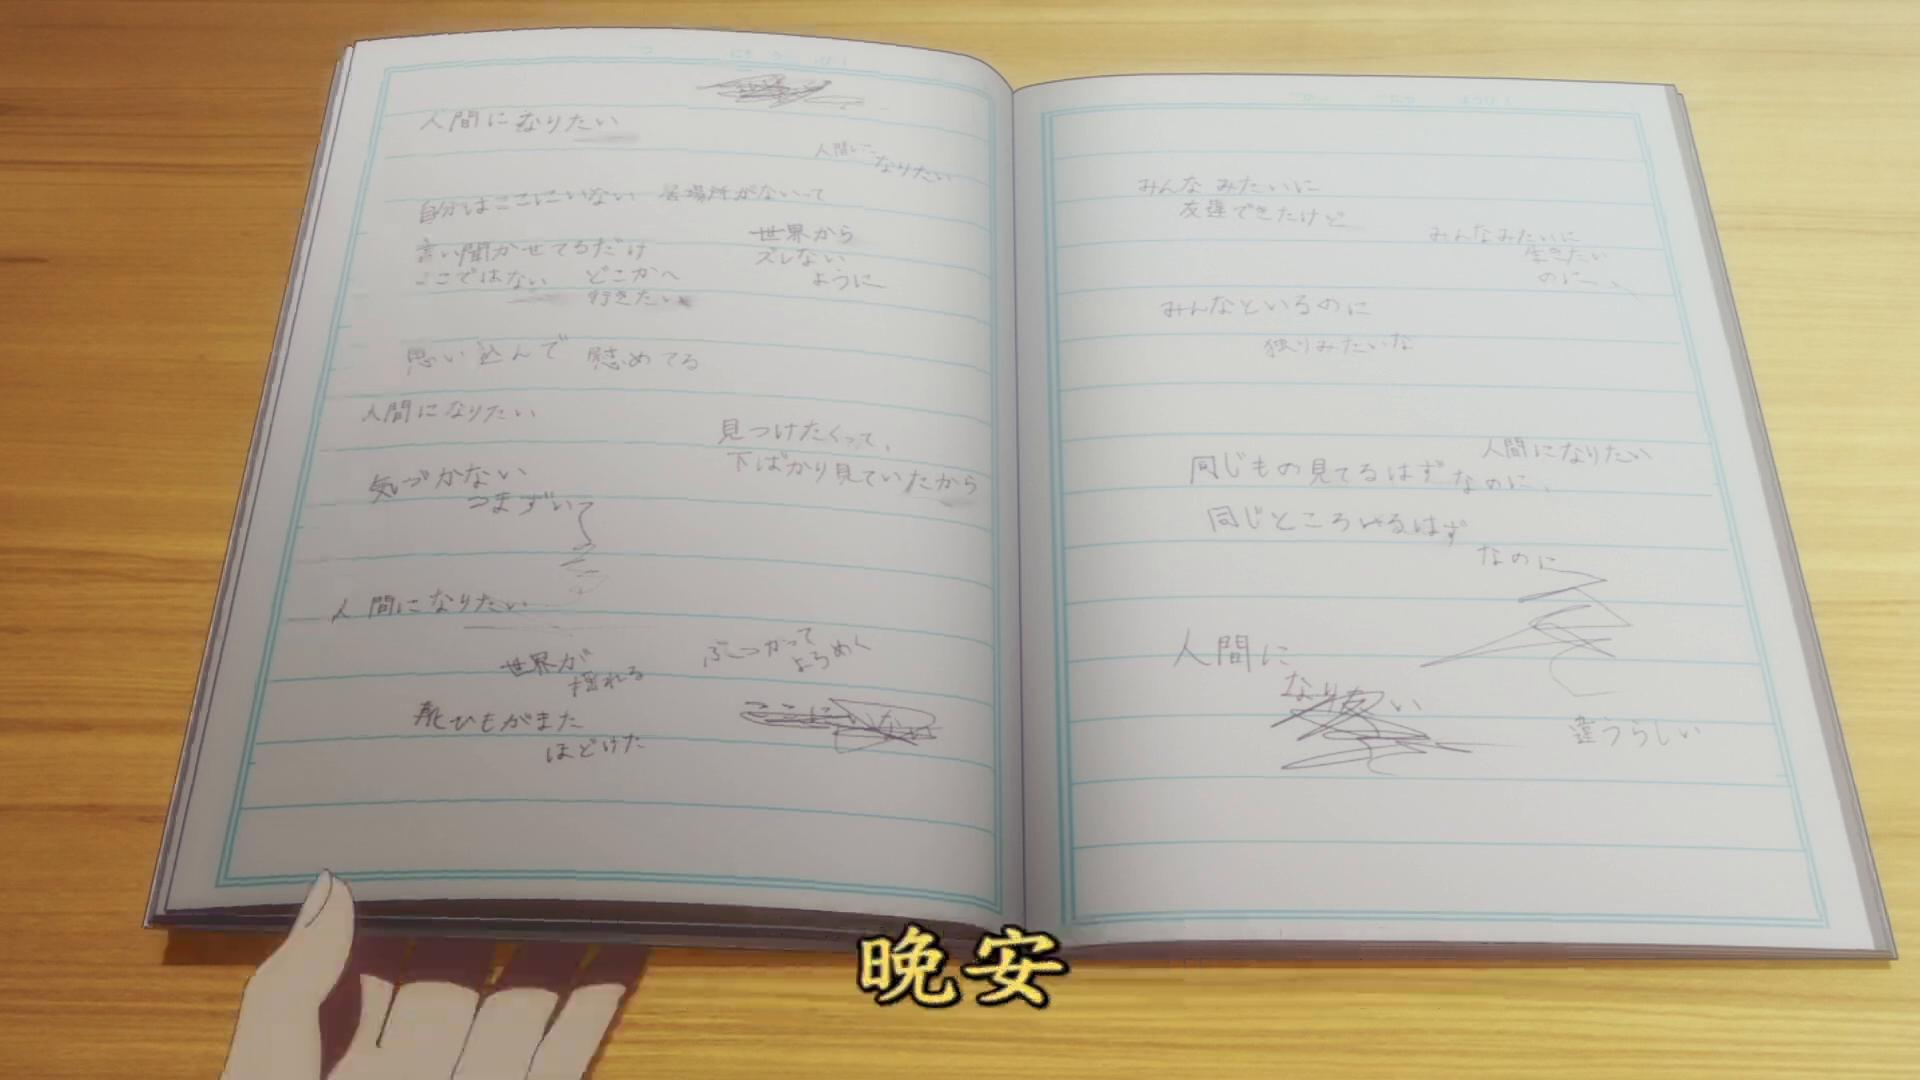 人間になりたい
人間になりたい
自分はここにいない 居場所がないって
言い聞かせてるだけ
世界から
ズレない
ように
ここではない どこかへ
行きたい
思い込んで 慰めてる
人間になりたい
見つけたくって、
下ばかり見ていたから
気づかない
つまずいて
人間になりたい
世界が
揺れる
ぶつかって
よろめく
靴ひもがまた
ほどけた
ここにいない
みんな みたいに
友達できたけど
みんなみたいに
生きたい
のに
みんなといるのに
独りみたいな
人間になりたい
同じもの見てるはずなのに、
同じところいるはず
なのに
人間に
なりたい
違うらしい
晚安